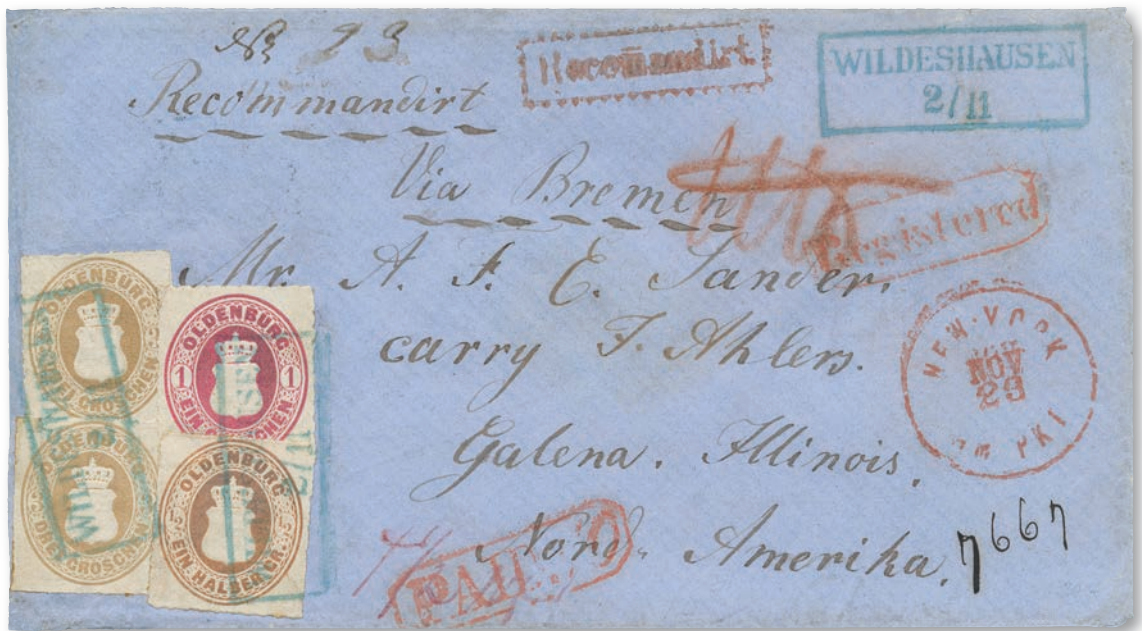 № 23
Recommandirt
Recommandirt
WILDESHAUSEN
2/11
Via Bremen
Registered
Mr. A. F. E. Sander.
carry F. Ahlers.
Galena. Illinois.
Nord- Amerika.
7667
NEW-YORK
NOV
23
AM. PKT
PAID
OLDENBURG
DREI GROSCHEN
OLDENBURG
1 1
EIN GROSCHEN
OLDENBURG
DREI GROSCHEN
OLDENBURG
EIN HALBER GR.
WILDESHAUSEN
2/11